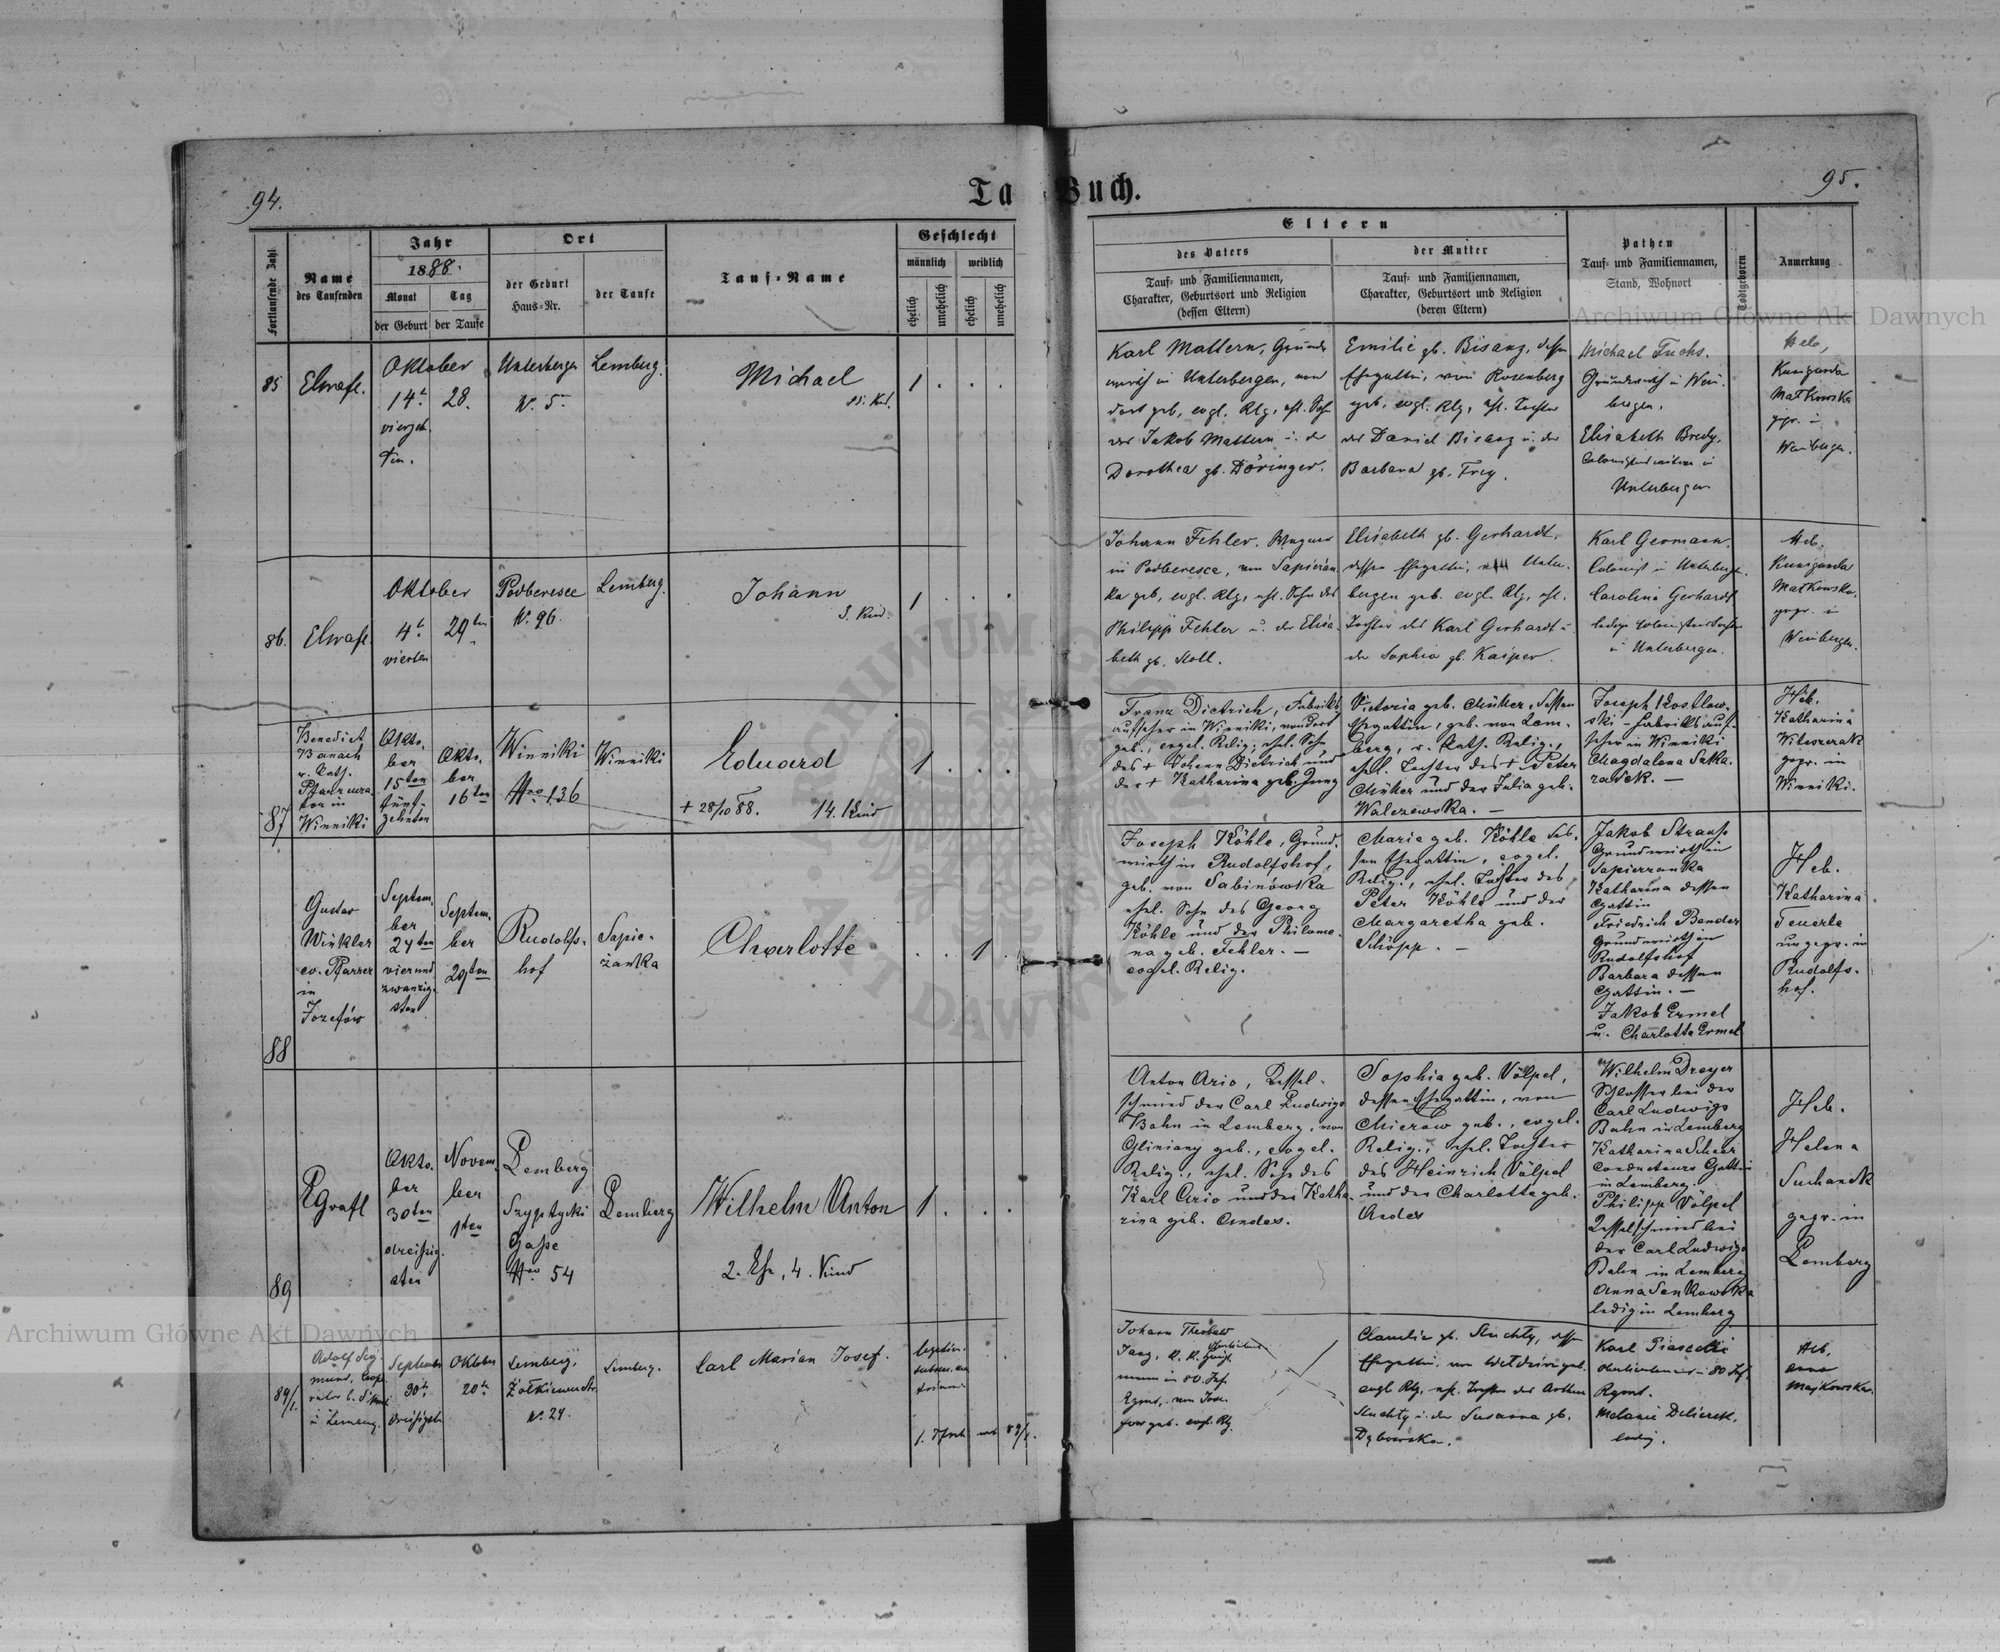 94.
Ta Buch.
95.
Fortlaufende Zahl
Name
des Taufenden
Jahr
1888.
Monat
der Geburt
Tag
der Taufe
Ort
der Geburt
Haus-Nr.
der Taufe
Tauf-Name
Geschlecht
männlich
weiblich
ehelich
unehelich
ehelich
unehelich
Eltern
des Vaters
Tauf- und Familiennamen,
Charakter, Geburtsort und Religion
(dessen Eltern)
der Mutter
Tauf- und Familiennamen,
Charakter, Geburtsort und Religion
(deren Eltern)
Pathen
Tauf- und Familiennamen,
Stand, Wohnort
Todtgeboren
Anmerkung
Archiwum Główne Akt Dawnych
85
Oktober
14t
28.
Unterbergen
N. 5
Lemberg.
Michael
1 . . .
Karl Mattern, Grund-
wirth in Unterbergen, von
dort geb, evgl. Rlg, ehl. Sohn
des Jakob Mattern u. der
Dorothea gb. Döringer.
Emilie gb. Bisanz, dessen
Ehegattin, von Rosenberg
geb, evgl. Rlg, ehl. Tochter
des Daniel Bisanz u. der
Barbara gb. Frey.
Michael Fuchs.
Grundwirth in Wein-
bergen.
Elisabeth Bredy,
Unterbergen
Heb,
Kunigunda
Matkowska
gepr. i
Weinbergen.
86.
Oktober
4t
29ten
vierten
Podberesce
N. 96.
Lemberg.
Johann
3. Kind.
1 . . .
Johann Fehler,
in Podberesce, von Sapiezan-
ka geb, evgl. Rlg, ehl. Sohn des
Philipp Fehler u. der Elisa-
beth gb. Stoll.
Elisabeth gb. Gerhardt,
dessen Ehegattin, Unter-
bergen geb. evgl. Rlg, ehl.
Tochter des Karl Gerhardt u.
der Sophia gb. Kaiper.
Karl Germann.
Colonist in Unterbergen.
Carolina Gerhardt
in Unterbergen.
Heb.
Kunigunda
Matkowska,
gepr. i
Weinbergen.
87
Benedict
Banach
r. kath.
Pfarrura
tor in
Winniki
Okto-
ber
15ten
fünf-
zehnten
Okto-
ber
16ten
Winniki
Nro 136
Winniki
Eduard
+ 28/10 88. 14. Kind
1 . . .
Franz Dietrich, Fabriks-
aufseher in Winniki, von dort
geb., evgel. Relig; ehel. Sohn
des + Johann Dietrich und
der + Katharina geb. Jung
Victoria geb. Müller, dessen
Ehegattin, geb. von Lem-
berg, r. kath. Relig.,
ehel. Tochter des + Peter
Müller und der Julia geb.
Walczewska. —
Joseph Kostlow-
ski - Fabriksauf-
seher in Winniki
Magdalena Saka-
razek. —
Heb.
Katharina
Witoszerak
gepr. in
Winniki.
88
Gustav
Winkler
ev. Pfarrer
in
Jozefów
Septem-
ber
24ten
vierund
zwanzig-
sten
Septem-
ber
29ten
Rudolfs-
hof
Sapie-
żanka
Charlotte
. . 1 .
Joseph Köhle, Grund-
wirth in Rudolfshof,
geb. von Sabinówka
ehel. Sohn des Georg
Köhle und der Philome-
na geb. Fehler. —
evgel. Relig.
Maria geb. Köhle des-
sen Ehegattin, evgel.
Relig., ehel. Tochter des
Peter Köhle und der
Margaretha geb.
Schöpp. —
Jakob Strauss
Grundwirth in
Sapiezanka
Katharina dessen
Gattin
Friedrich Bender
Grundwirth in
Rudolfshof
Barbara dessen
Gattin. —
Jakob Ermel
u. Charlotte Ermel
Heb.
Katharina
Feuerle
ungepr. in
Rudolfs-
hof.
89
Okto-
ber
30ten
dreissig-
sten
Novem-
ber
1ten
Lemberg
Szeptycki
Gasse
Nro 54
Lemberg
Wilhelm Anton
2. Ehe, 4. Kind
1 . . .
Anton Ario, Kessel-
schmied der Carl Ludwigs
Bahn in Lemberg, von
Gliniany geb., evgel.
Relig., ehel. Sohn des
Karl Ario und der Katha-
rina geb. Andes.
Sophia geb. Völpel,
dessen Ehegattin, von
Mierow geb., evgel.
Relig., ehel. Tochter
des Heinrich Völpel
und der Charlotte geb.
Andes
Wilhelm Dreyer
Schlosser bei der
Carl Ludwigs
Bahn in Lemberg
Katharina Scheer
Conducteurs Gattin
in Lemberg.
Philipp Völpel
Kesselschmied bei
der Carl Ludwigs
Bahn in Lemberg
Anna Senkowska
ledig in Lemberg
Heb.
Helena
Suchanek
gepr. in
Lemberg
Archiwum Główne Akt Dawnych
89/1.
September
30t
dreissigsten
Oktober
20t
Lemberg,
Żołkiewerstr.
N. 24.
Lemberg.
Carl Marian Josef.
Johann Theobald
Jang, K. K.
mann in 80. Inf.
Rgmt, von Jose-
fow geb. evgl. Rlg.
Claudia gb. Stuchty, dessen
Ehegattin,
evgl Rlg, ehl. Tochter des Arthur
Stuchty u. der Susanna gb.
Dębowska.
Karl Piasecki
80 Inf.
Rgmt.
Melanie
ledig.
Heb,
Anna
Majkowska.